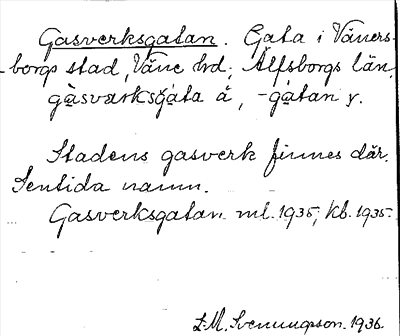 Gasverksgatan. Gata i Väners-
-borgs stad, Väne hd; Älfsborgs län,
gàsværksgàta å, -gàtan y.
Stadens gasverk finnes där.
Sentida namn.
Gasverksgatan ml. 1935, kb. 1935.
L-M. Svenungson. 1936.